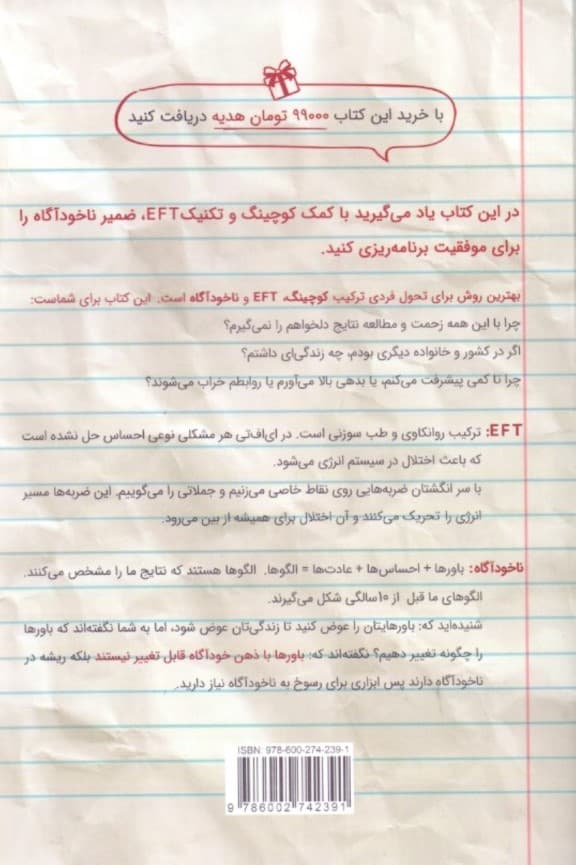 با خرید این کتاب ۹۹۰۰۰ تومان هدیه دریافت کنید
در این کتاب یاد می‌گیرید با کمک کوچینگ و تکنیک EFT، ضمیر ناخودآگاه را
برای موفقیت برنامه‌ریزی کنید.
بهترین روش برای تحول فردی ترکیب کوچینگ، EFT و ناخودآگاه است. این کتاب برای شماست:
چرا با این همه زحمت و مطالعه نتایج دلخواهم را نمی‌گیرم؟
اگر در کشور و خانواده دیگری بودم، چه زندگی‌ای داشتم؟
چرا تا کمی پیشرفت می‌کنم، یا بدهی بالا می‌آورم یا روابطم خراب می‌شوند؟
EFT: ترکیب روانکاوی و طب سوزنی است. در ای‌اف‌تی هر مشکلی نوعی احساس حل نشده است
که باعث اختلال در سیستم انرژی می‌شود.
با سر انگشتان ضربه‌هایی روی نقاط خاصی می‌زنیم و جملاتی را می‌گوییم. این ضربه‌ها مسیر
انرژی را تحریک می‌کنند و آن اختلال برای همیشه از بین می‌رود.
ناخودآگاه: باورها + احساس‌ها + عادت‌ها = الگوها. الگوها هستند که نتایج ما را مشخص می‌کنند.
الگوهای ما قبل از ۱۰سالگی شکل می‌گیرند.
شنیده‌اید که: باورهایتان را عوض کنید تا زندگی‌تان عوض شود، اما به شما نگفته‌اند که باورها
را چگونه تغییر دهیم؟ نگفته‌اند که: باورها با ذهن خودآگاه قابل تغییر نیستند بلکه ریشه در
ناخودآگاه دارند پس ابزاری برای رسوخ به ناخودآگاه نیاز دارید.
ISBN: 978-600-274-239-1
9 786002 742391